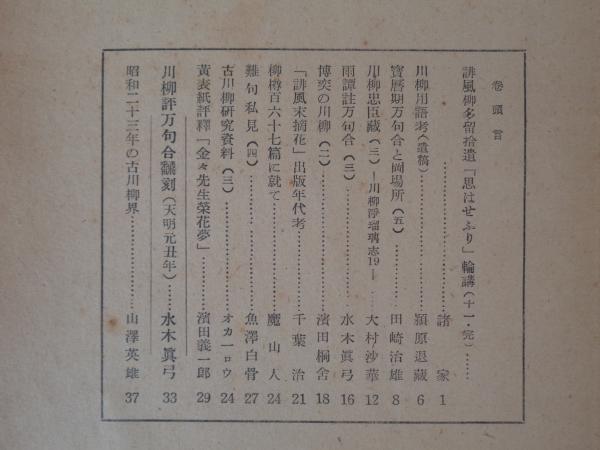 卷頭言
誹風柳多留拾遺『思はせふり』輪講(十一・完)……
……諸家 1
川柳用語考(遺稿)……潁原退藏 6
寳曆期万句合と岡場所(五)……田崎治雄 8
川柳忠臣藏(三)—川柳淨瑠璃志19—……大村沙華 12
雨譚註万句合(三)……水木眞弓 16
博奕の川柳(二)……濱田桐舍 18
「誹風末摘花」出版年代考……千葉治 21
柳樽百六十七篇に就て……魔山人 24
難句私見(四)……魚澤白骨 27
古川柳研究資料(三)……オカ一ロウ 24
黃表紙評釋「金々先生榮花夢」……濱田義一郎 29
川柳評万句合飜刻(天明元丑年)……水木眞弓 33
昭和二十三年の古川柳界……山澤英雄 37